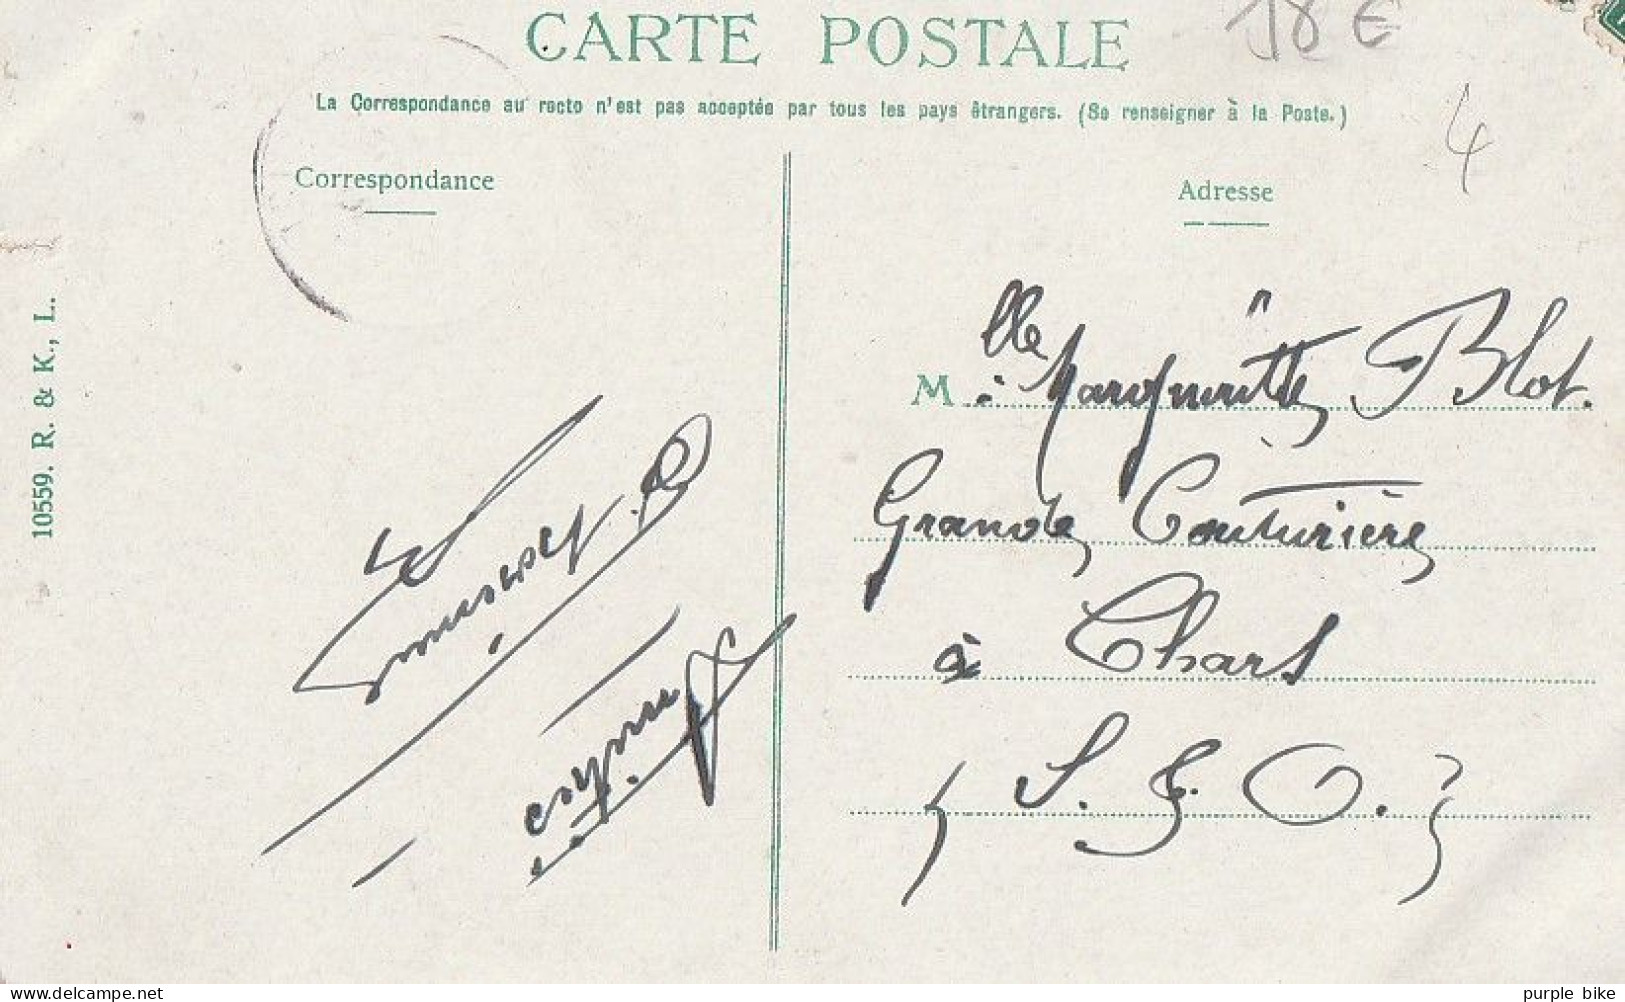 CARTE POSTALE
18 €
La Correspondance au recto n'est pas acceptée par tous les pays étrangers. (Se renseigner à la Poste.)
4
Correspondance
Adresse
10559. R. & K., L.
Mlle Marguerite Blot.
Grande Couturière
à Chars
(S. & O.)
www.delcampe.net
purple bike